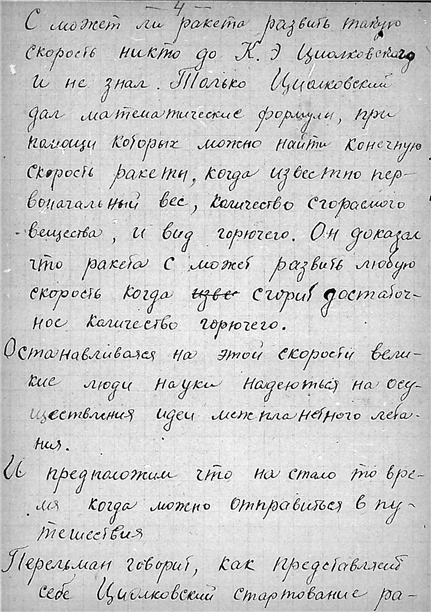 — 4 —
С может ли ракета развить такую
скорость никто до К. Э Циолковского
и не знал. Только Циолковский
дал математические формулы, при
помощи которых можно найти конечную
скорость ракеты, когда известно пер-
воначальный вес, количество сгораемого
вещества, и вид горючего. Он доказал
что ракета с может развить любую
скорость когда изве сгорит достаточ-
ное количество горючего.
Останавливаяся на этой скорости вели-
кие люди науки надеються на осу-
ществления идеи межпланетного лета-
ния.
И предположим что на стало то вре-
мя когда можно отправиться в пу-
тешествия
Перельман говорит, как представляет
себе Циолковский стартование ра-